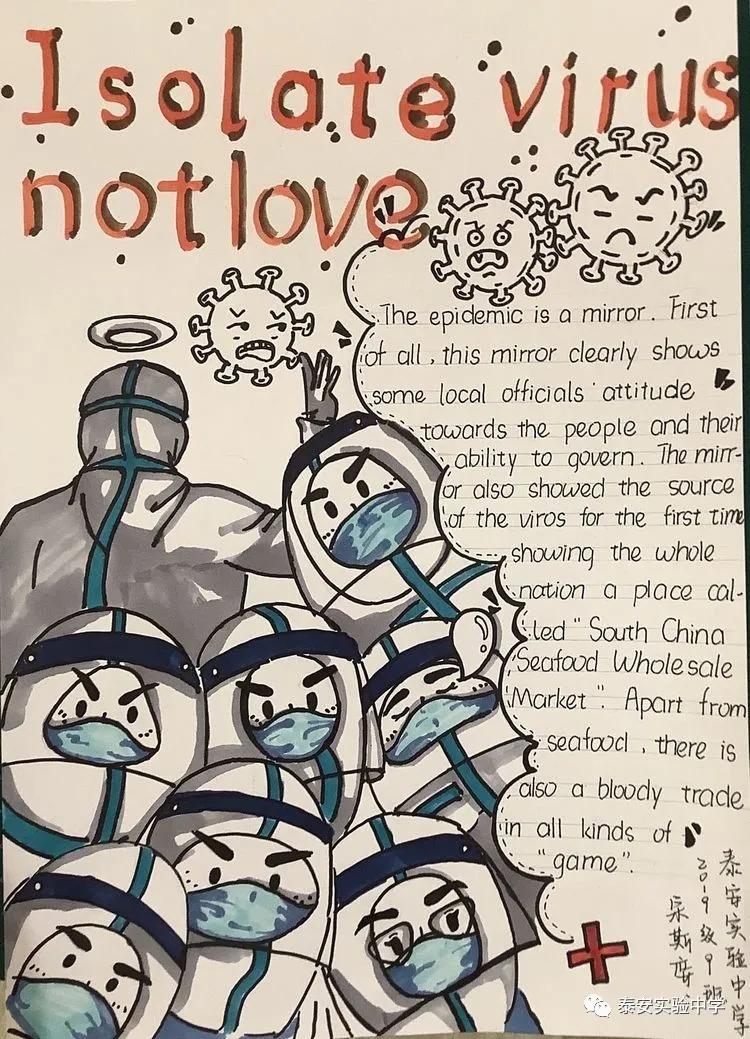 Isolate virus
not love
The epidemic is a mirror. First
of all, this mirror clearly shows
some local officials' attitude
towards the people and their
ability to govern. The mirr-
or also showed the source
of the viros for the first time
showing the whole
nation a place cal-
led "South China
Seafood Wholesale
Market". Apart from
seafood, there is
also a bloody trade
in all kinds of
"game".
泰安实验中学
2019级9班
泰安实验中学